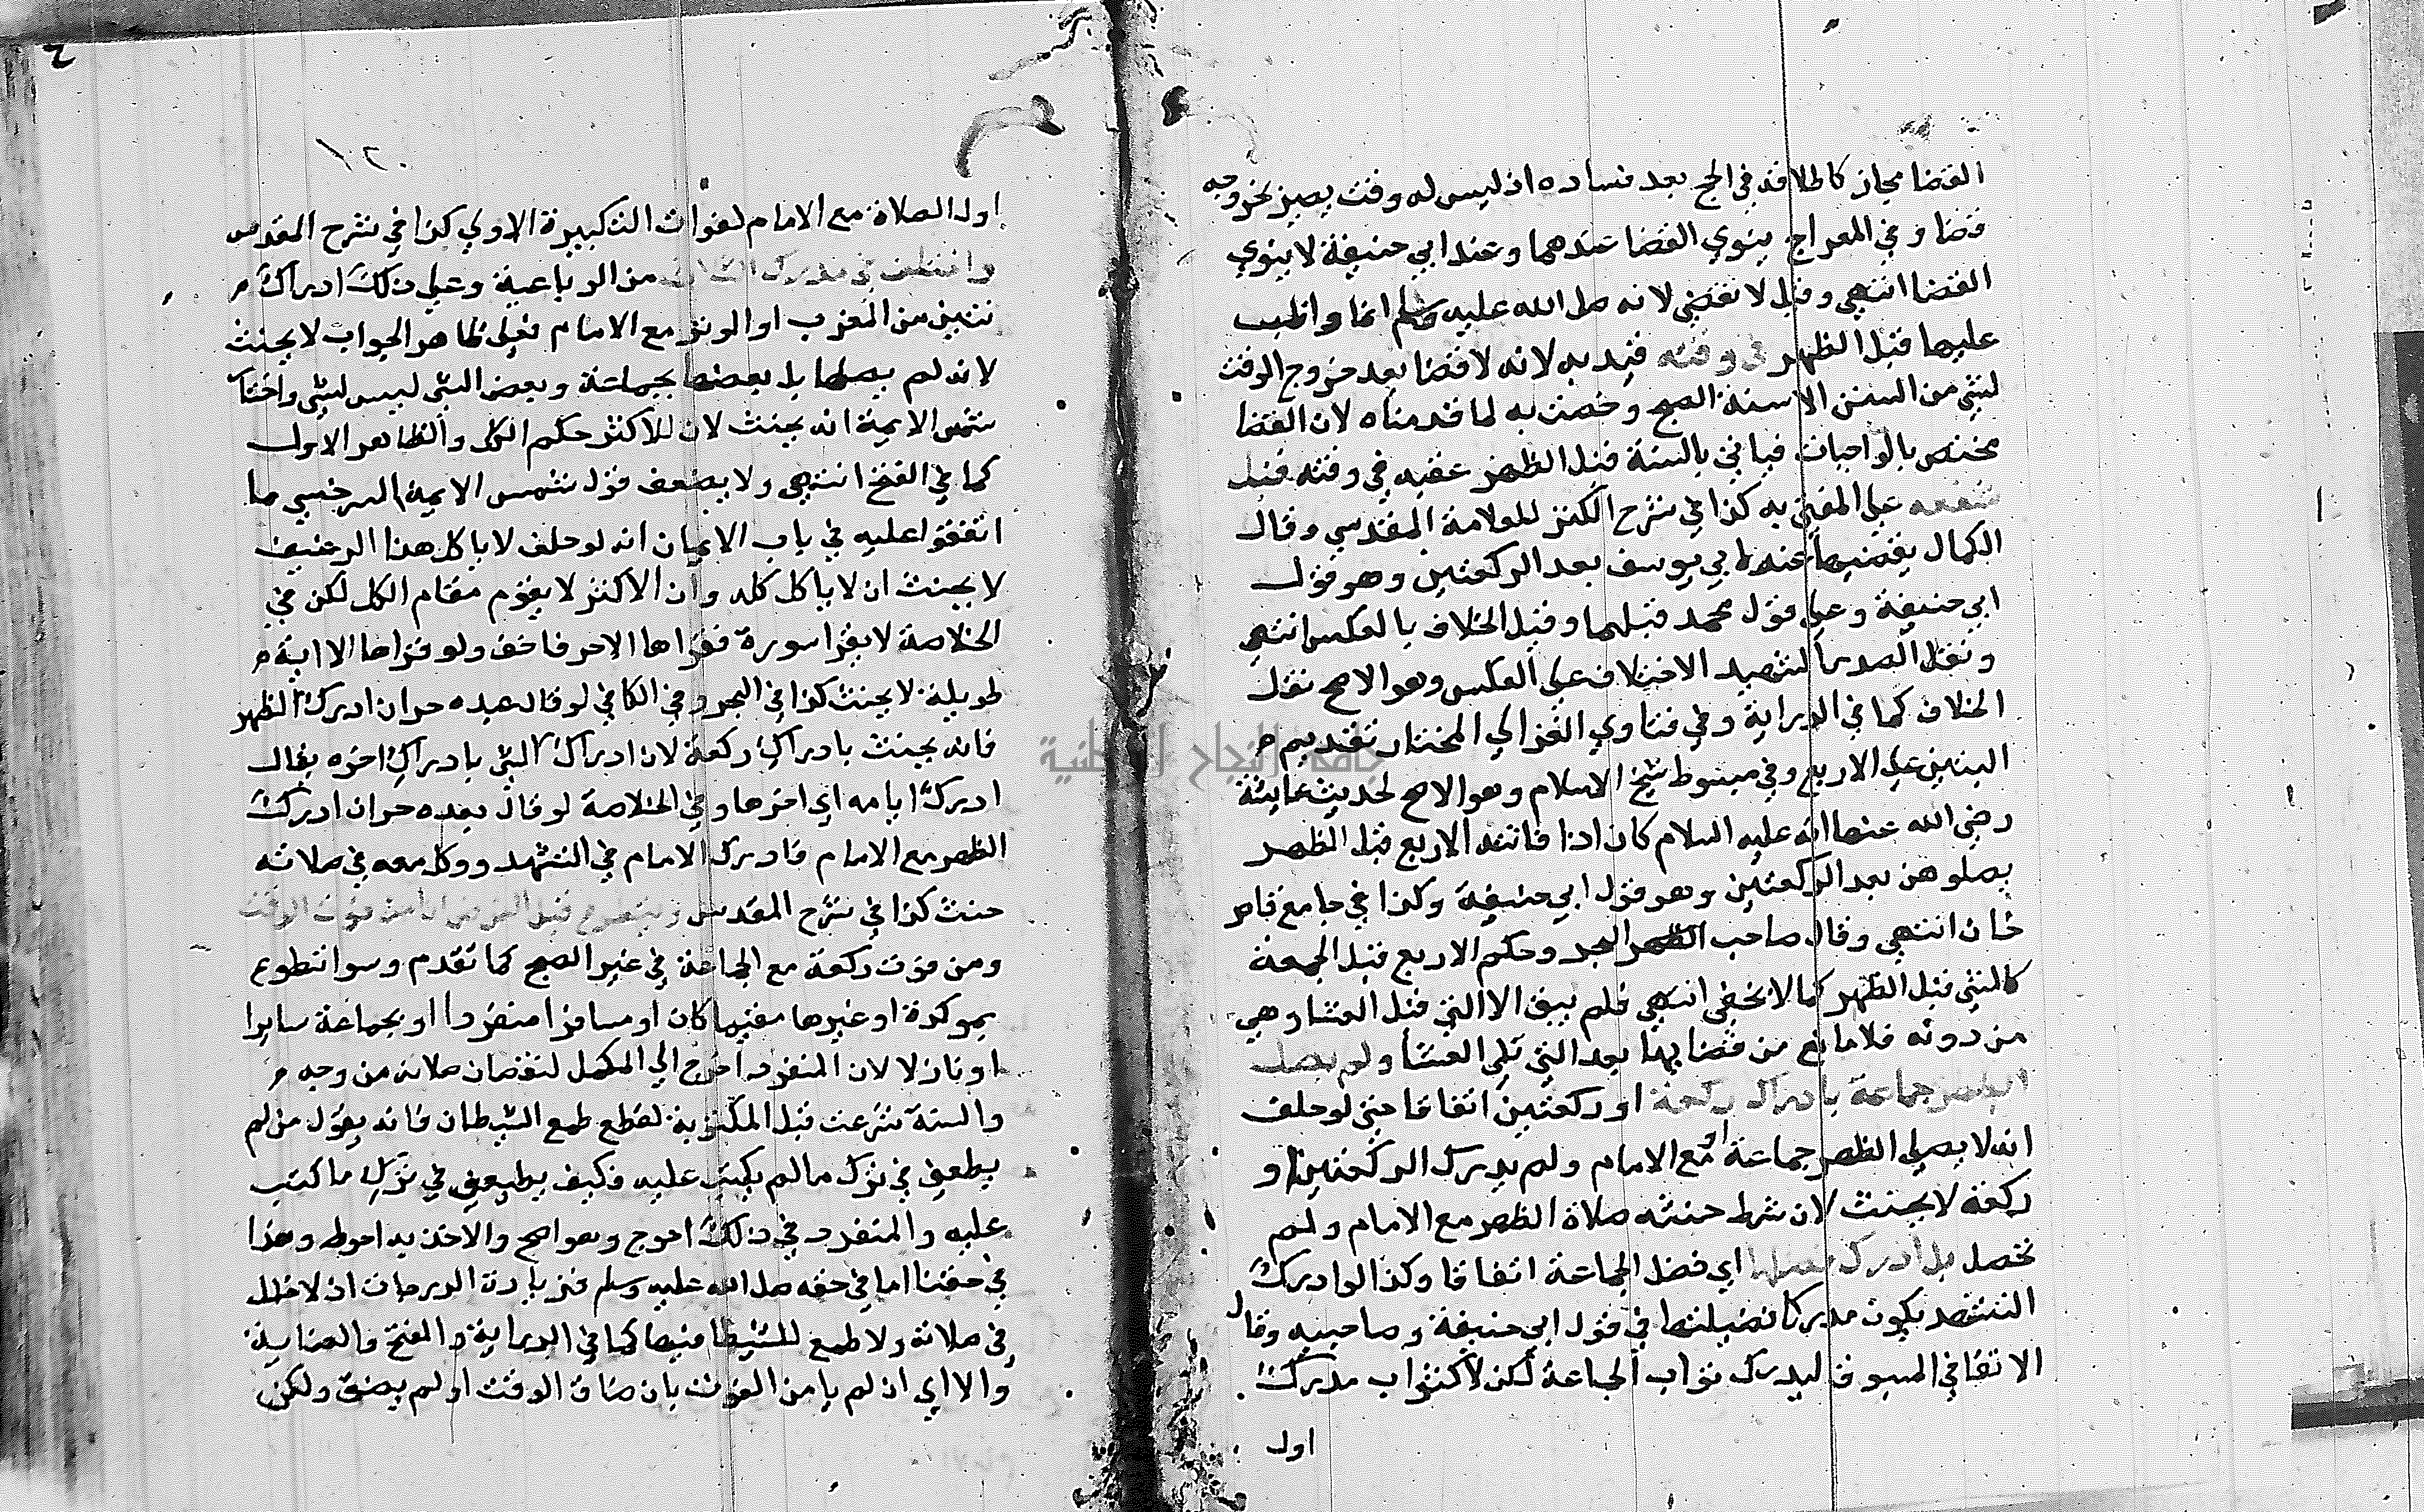 القضا مجاز كاطلاقه في الحج بعد فساده اذ ليس له وقت يصير بخروجه
قضا وفي المعراج ينوي القضا عندهما وعند ابي حنيفة لا ينوي
القضا انتهى وقيل لا تقضى لانه صلى الله عليه وسلم انما واظب
عليها قبل الظهر في وقته قيد به لانه لا قضا بعد خروج الوقت
لشي من السنن الا سنة الصبح وخصت به لما قدمناه لان القضا
مختص بالواجبات فياتي بالسنة قبل الظهر عقبه في وقته قبل
شفعه على المفتى به كذا في شرح الكنز للعلامة المقدسي وقال
الكمال يقضيها عند ابي يوسف بعد الركعتين وهو قول
ابي حنيفة وعلى قول محمد قبلهما وقيل الخلاف بالعكس انتهى
ونقل الصدر الشهيد الاختلاف على العكس وهو الاصح نقل
الخلاف كما في الدراية وفي فتاوي الغزالي المختار تقديم م
الثنتين على الاربع وفي مبسوط شيخ الاسلام وهو الاصح لحديث عايشة
رضي الله عنها انه عليه السلام كان اذا فاتته الاربع قبل الظهر
يصلوهن بعد الركعتين وهو قول ابي حنيفة وكذا في جامع قاض
خان انتهى وقال صاحب البحر وحكم الاربع قبل الجمعة
كالتي قبل الظهر كما لا يخفى انتهى فلم يبق الا التي قبل العشا وهي
مندوبه فلا مانع من قضايها بعد التي تلي العشا ولم يصل
الظهر جماعة بادراك ركعة او ركعتين اتفاقا حتى لو حلف
انه لا يصلي الظهر جماعة او مع الامام ولم يدرك الركعتين او
ركعة لا يحنث لان شرط حنثه صلاة الظهر مع الامام ولم
تحصل بل ادرك فضلها اي فضل الجماعة اتفاقا وكذا لو ادرك
التشهد يكون مدركا لفضيلتها في قول ابي حنيفة وصاحبيه وقال
الاتقاني المسبوق ليدرك ثواب الجماعة لكن لا كثواب مدرك
اول
١٢٠
اول الصلاة مع الامام لفوات التكبيرة الاولي كذا في شرح المقدسي
واختلف في مدرك الثلاث من الرباعية وعلى ذلك ادراك م
ثنتين من المغرب او الوتر مع الامام فعلى ظاهر الجواب لا يحنث
لانه لم يصلها بل بعضها بجماعة وبعض الشي ليس لشي واختا
شمس الايمة انه يحنث لان للاكثر حكم الكل والظاهر الاول
كما في الفتح انتهى ولا يضعف قول شمس الايمة السرخسي ما
اتفقوا عليه في باب الايمان انه لو حلف لا ياكل هذا الرغيف
لا يحنث ان لا ياكل كله وان الاكثر لا يقوم مقام الكل لكن في
الخلاصة لا يقرا سورة فقراها الا حرفا حنث ولو قراها الا اية م
طويلة لا يحنث كذا في البحر وفي الكافي لو قال عبده حر ان ادرك الظهر
فانه يحنث بادراك ركعة لان ادراك الشي بادراك اخره يقال
ادرك ايامه اي اخرها وفي الخلاصة لو قال عبده حر ان ادرك
الظهر مع الامام فادرك الامام في التشهد ودخل معه في صلاته
حنث كذا في شرح المقدسي ويتطوع قبل الفرض ان امن فوت الوقت
ومن فوت ركعة مع الجماعة في غير الصبح كما تقدم وسوا تطوع
بموكدة او غيرها مقيما كان او مسافرا منفردا او بجماعة سايرا
او نازلا لان المنفرد احوج الي المكمل لنقصان صلاته من وجه م
والسنة شرعت قبل المكتوبة لقطع طمع الشيطان فانه يقول من لم
يطعني في ترك ما لم يكتب عليه فكيف يطيعني في ترك ما كتب
عليه والمنفرد في ذلك احوج وهو اصح والاخذ به احوط وهذا
في حقنا اما في حقه صلى الله عليه وسلم فزيادة الدرجات اذ لا خلل
في صلاته ولا طمع للشيطان فيها كما في الدراية والفتح والعناية
والا اي ان لم يامن الفوت بان ضاق الوقت او لم يضق ولكن
جامعة النجاح الوطنية